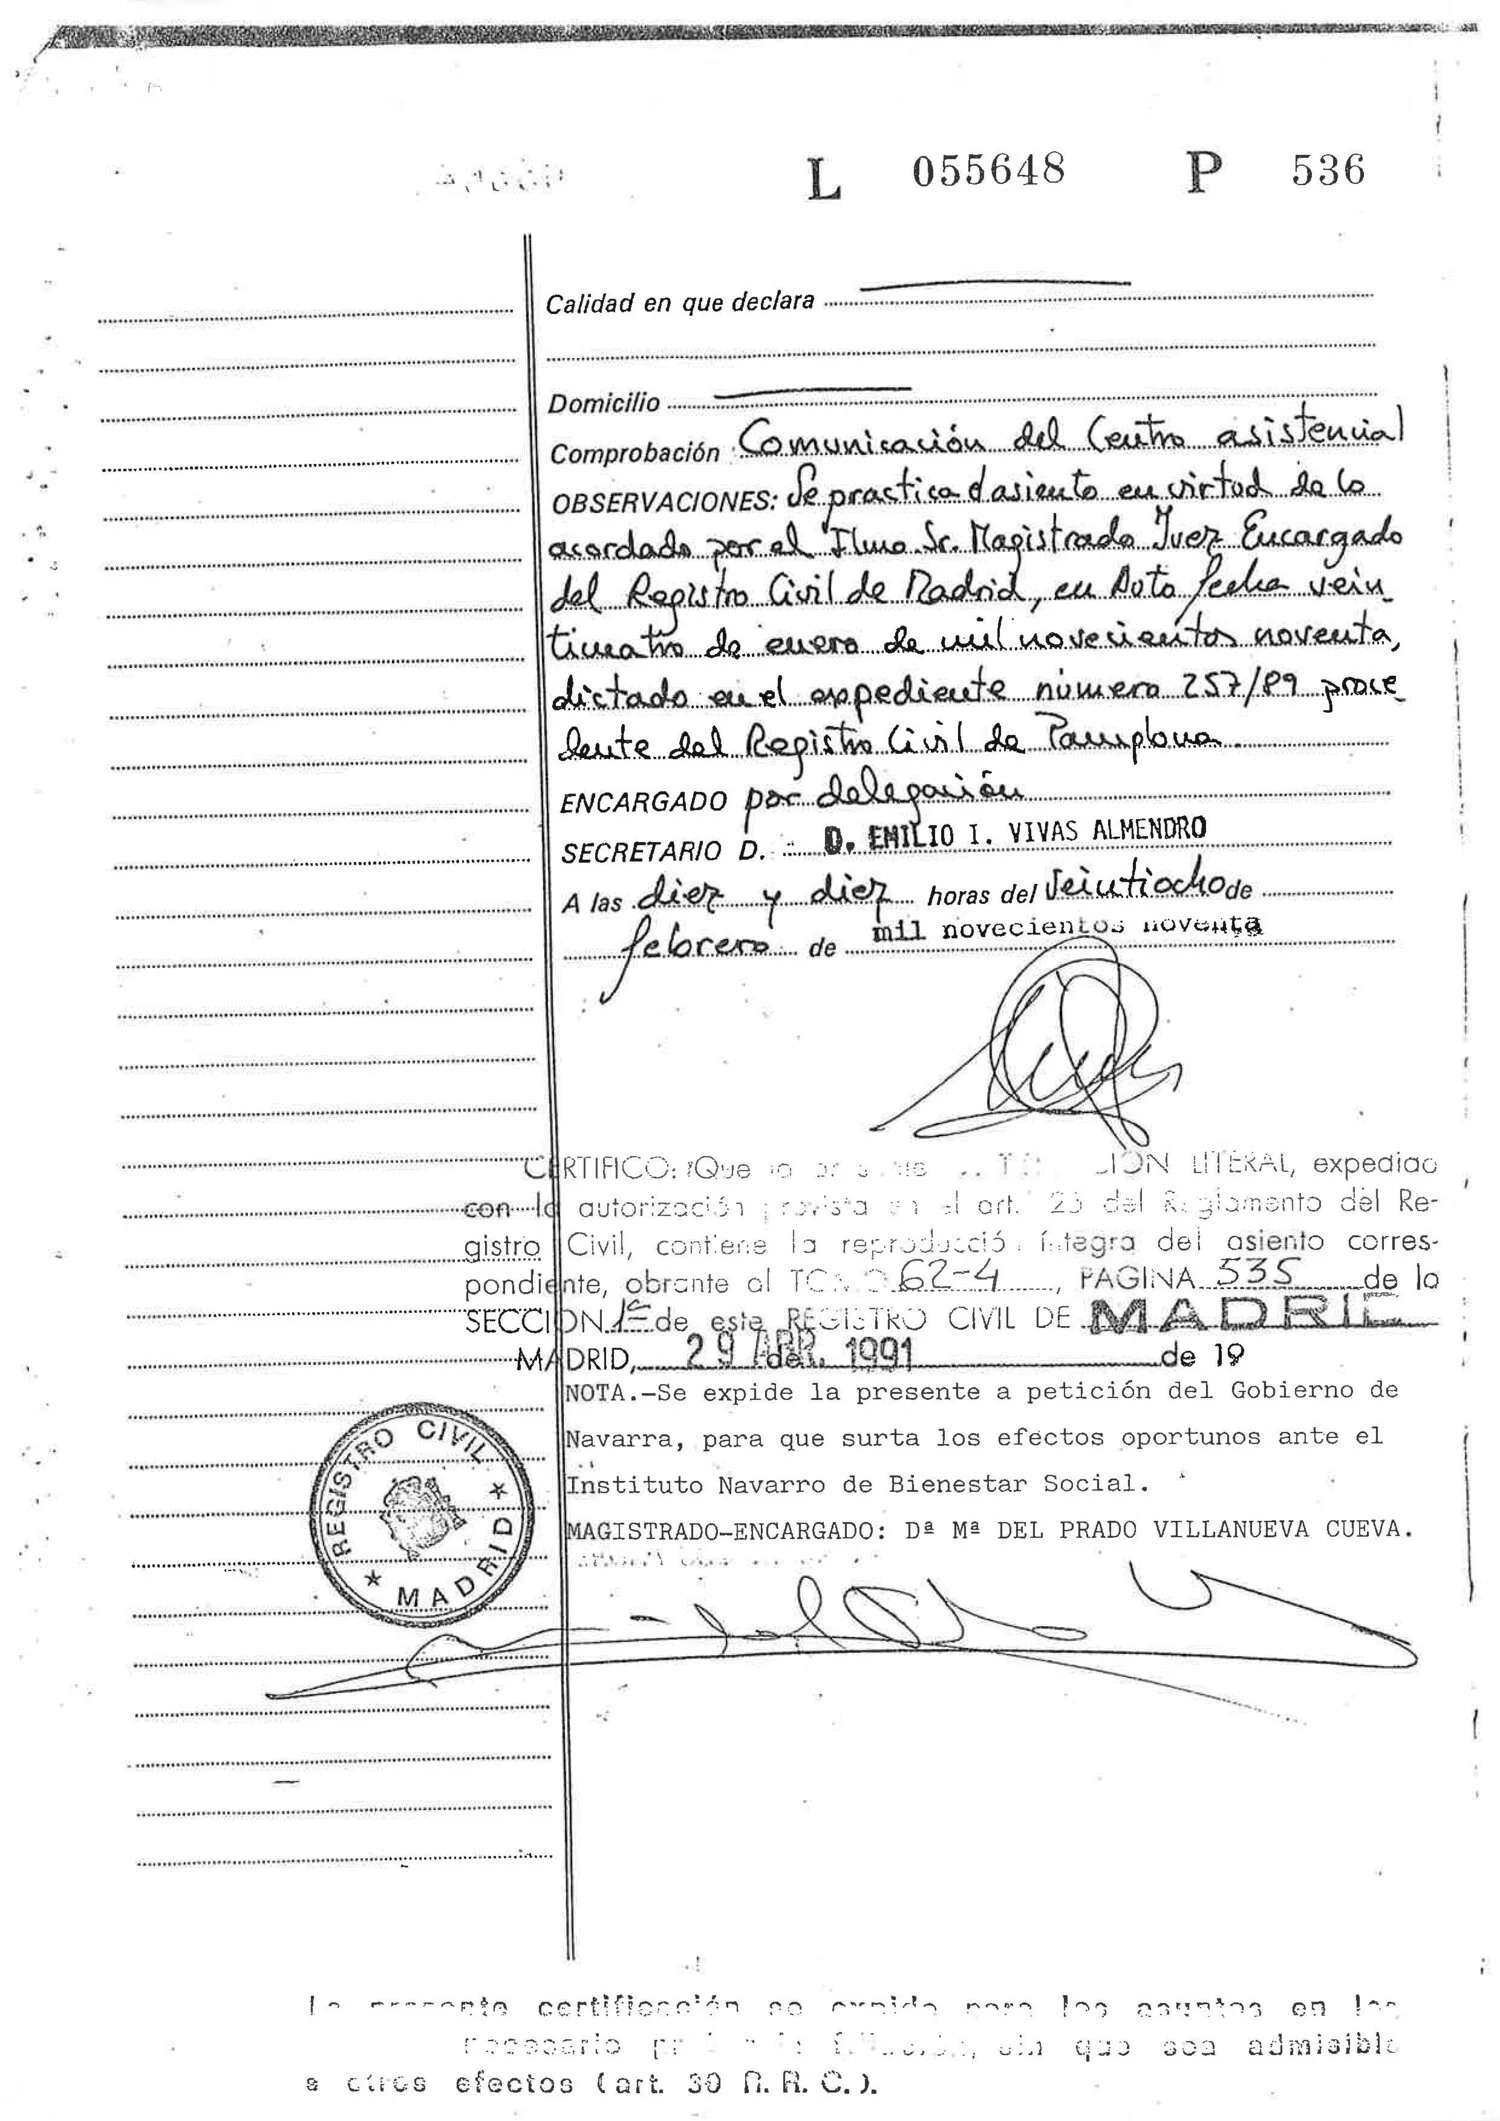 L 055648 P 536
Calidad en que declara
Domicilio
Comprobación: Comunicación del Centro asistencial
OBSERVACIONES: Se practica el asiento en virtud de lo
acordado por el Ilmo. Sr. Magistrado Juez Encargado
del Registro Civil de Madrid, en Auto fecha vein
ticuatro de enero de mil novecientos noventa,
dictado en el expediente número 257/89 proce
dente del Registro Civil de Pamplona.
ENCARGADO por delegación
SECRETARIO D. D. EMILIO I. VIVAS ALMENDRO
A las diez y diez horas del veintiocho de
febrero de mil novecientos noventa
CERTIFICO: Que LITERAL, expedida
con la autorización prevista en el art. 26 del Reglamento del Re-
gistro Civil, contiene la reproducción íntegra del asiento corres-
pondiente, obrante al TOMO 62-4, PAGINA 535 de la
SECCION 1ª de este REGISTRO CIVIL DE MADRID
MADRID, 29 ABR. 1991 de 19
NOTA.-Se expide la presente a petición del Gobierno de
Navarra, para que surta los efectos oportunos ante el
Instituto Navarro de Bienestar Social.
MAGISTRADO-ENCARGADO: Dª Mª DEL PRADO VILLANUEVA CUEVA.
REGISTRO CIVIL
★ MADRID ★
La presente certificación se expide para los asuntos en los
necesario filiación, sin que sea admisible
a otros efectos (art. 30 R. R. C.).